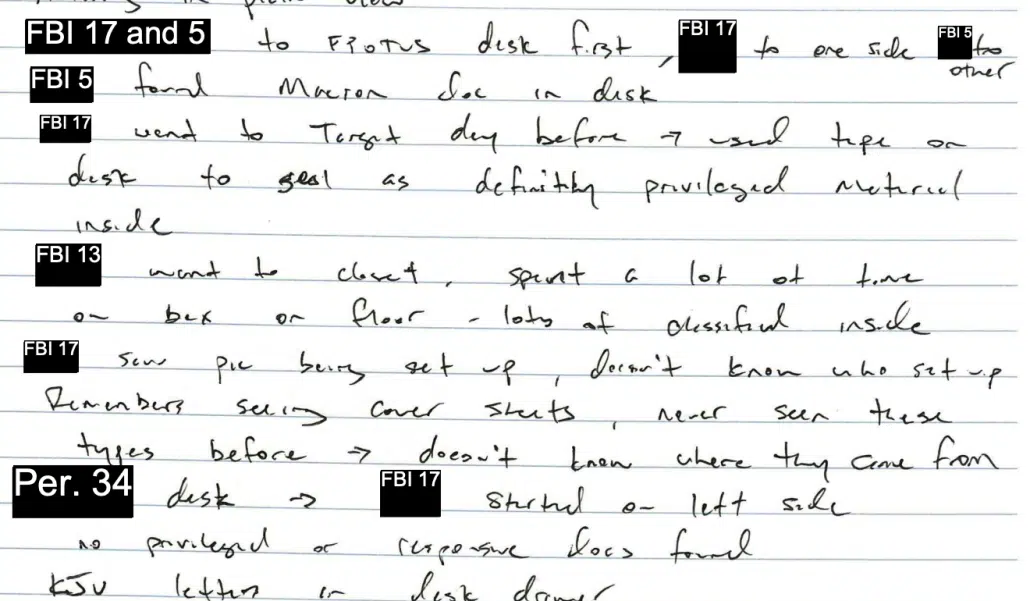 in plain view
FBI 17 and 5 to FPOTUS desk first, FBI 17 to one side FBI 5 to
other
FBI 5 found Macron doc in desk
FBI 17 went to Target day before → used tape on
desk to seal as definitely privileged material
inside
FBI 13 went to closet, spent a lot of time
on box on floor - lots of classified inside
FBI 17 saw pic being set up, doesn't know who set up
Remembers seeing cover sheets, never seen these
types before → doesn't know where they came from
Per. 34 desk → FBI 17 started on left side
no privileged or responsive docs found
KJU letters in desk drawer